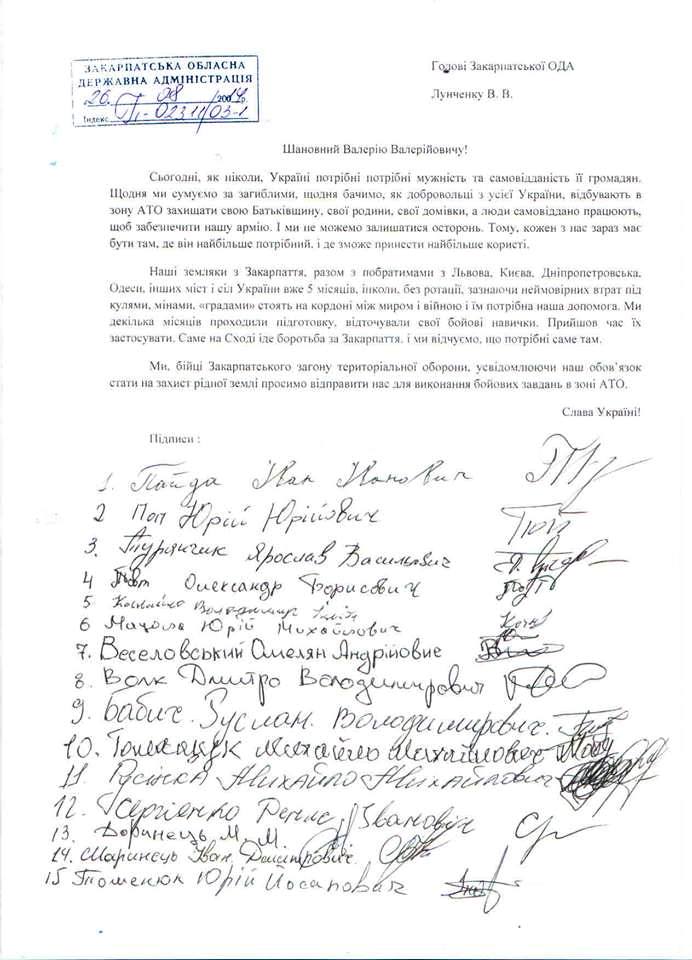 ЗАКАРПАТСЬКА ОБЛАСНА
ДЕРЖАВНА АДМІНІСТРАЦІЯ
26. 08 2014р.
Індекс 02311/03-1
Голові Закарпатської ОДА
Лунченку В. В.
Шановний Валерію Валерійовичу!
Сьогодні, як ніколи, Україні потрібні потрібні мужність та самовідданість її громадян.
Щодня ми сумуємо за загиблими, щодня бачимо, як добровольці з усієї України, відбувають в
зону АТО захищати свою Батьківщину, свої родини, свої домівки, а люди самовіддано працюють,
щоб забезпечити нашу армію. І ми не можемо залишатися осторонь. Тому, кожен з нас зараз має
бути там, де він найбільше потрібний, і де зможе принести найбільше користі.
Наші земляки з Закарпаття, разом з побратимами з Львова, Києва, Дніпропетровська,
Одеси, інших міст і сіл України вже 5 місяців, інколи, без ротації, зазнаючи неймовірних втрат під
кулями, мінами, «градами» стоять на кордоні між миром і війною і їм потрібна наша допомога. Ми
декілька місяців проходили підготовку, відточували свої бойові навички. Прийшов час їх
застосувати. Саме на Сході іде боротьба за Закарпаття, і ми відчуємо, що потрібні саме там.
Ми, бійці Закарпатського загону територіальної оборони, усвідомлюючи наш обов’язок
стати на захист рідної землі просимо відправити нас для виконання бойових завдань в зоні АТО.
Слава Україні!
Підписи :
1. Пайда Іван Іванович
2 Поп Юрій Юрійович
3. Ярослав Васильович
4 Олександр Борисович
5 Володимир
6 Юрій Михайлович
7. Веселовський Омелян Андрійович
8. Волк Дмитро Володимирович
9. Бабич. Руслан. Володимирович.
10. Михайло Михайлович
11. Русинка Михайло Михайлович
12. Сергієнко Денис Іванович
13. Доринець М. М.
14. Маринець Іван Дмитрович
15 Томенюк Юрій Йосипович